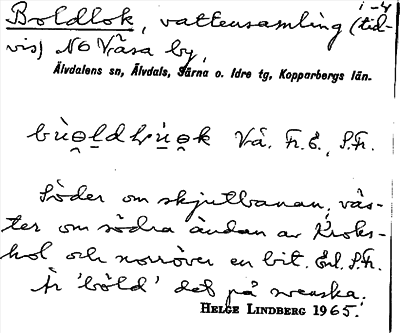 i-4
Boldlok, vattensamling (tid-
vis) NO Våsa by,
Älvdalens sn, Älvdals, Särna o. Idre tg, Kopparbergs län.
Vå. Fr. E., S. Fr.
Söder om skjutbanan, väs-
ter om södra ändan av Kroks-
hol och norröver en bit. Enl. S. Fr.
är 'böld' det på svenska.
HELGE LINDBERG 1965.